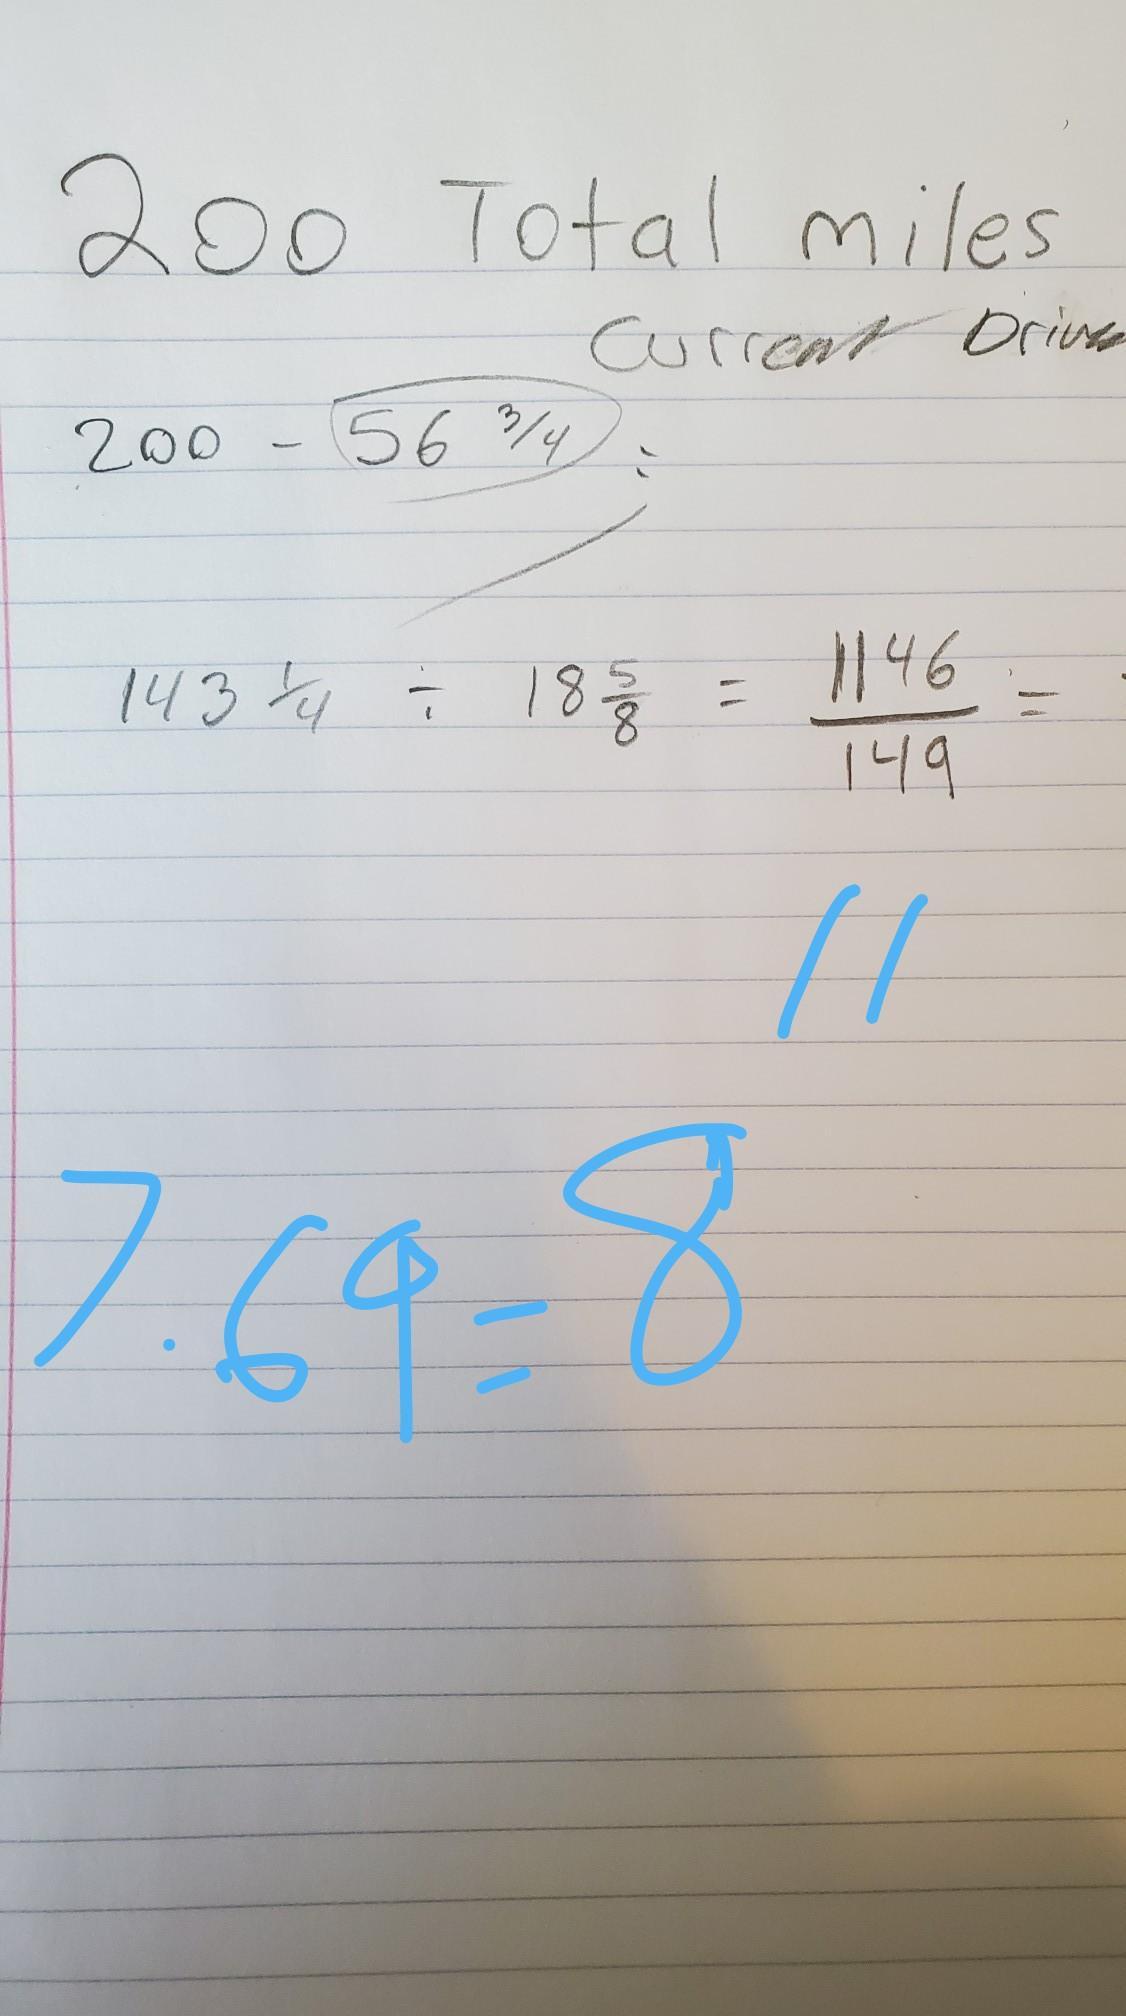 200 Total miles
Current
200 - 56 3/4 :
143 1/4 ÷ 18 5/8 = 1146/149 =
11
7.69 = 8